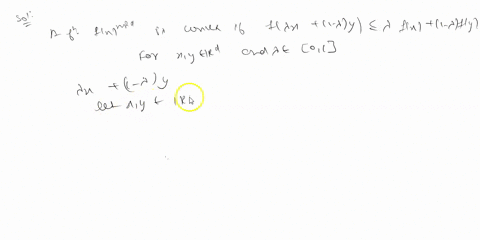 Sol:
A fⁿ: is convex if f(λx + (1-λ)y) ≤ λ f(x) + (1-λ)f(y)
For x,y ∈ ℝᵈ and λ ∈ [0,1]
λx + (1-λ)y
let x,y ∈ ℝ